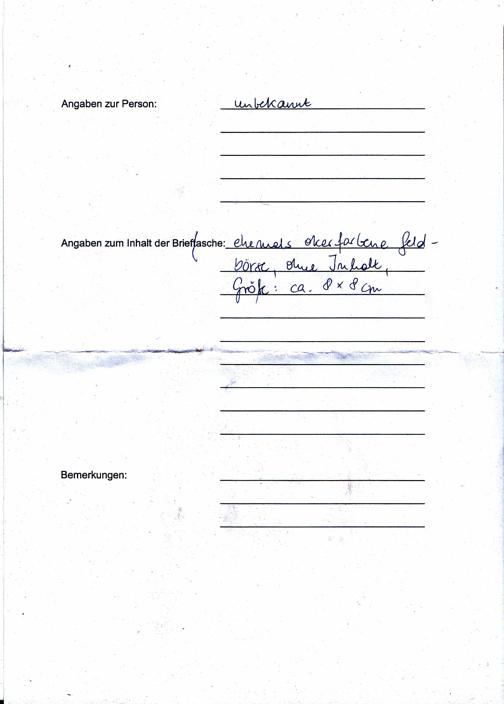 Angaben zur Person: unbekannt
Angaben zum Inhalt der Brieftasche: ehemals okerfarbene Geld-
börse, ohne Inhalt,
Größe: ca. 8 x 8 cm
Bemerkungen: